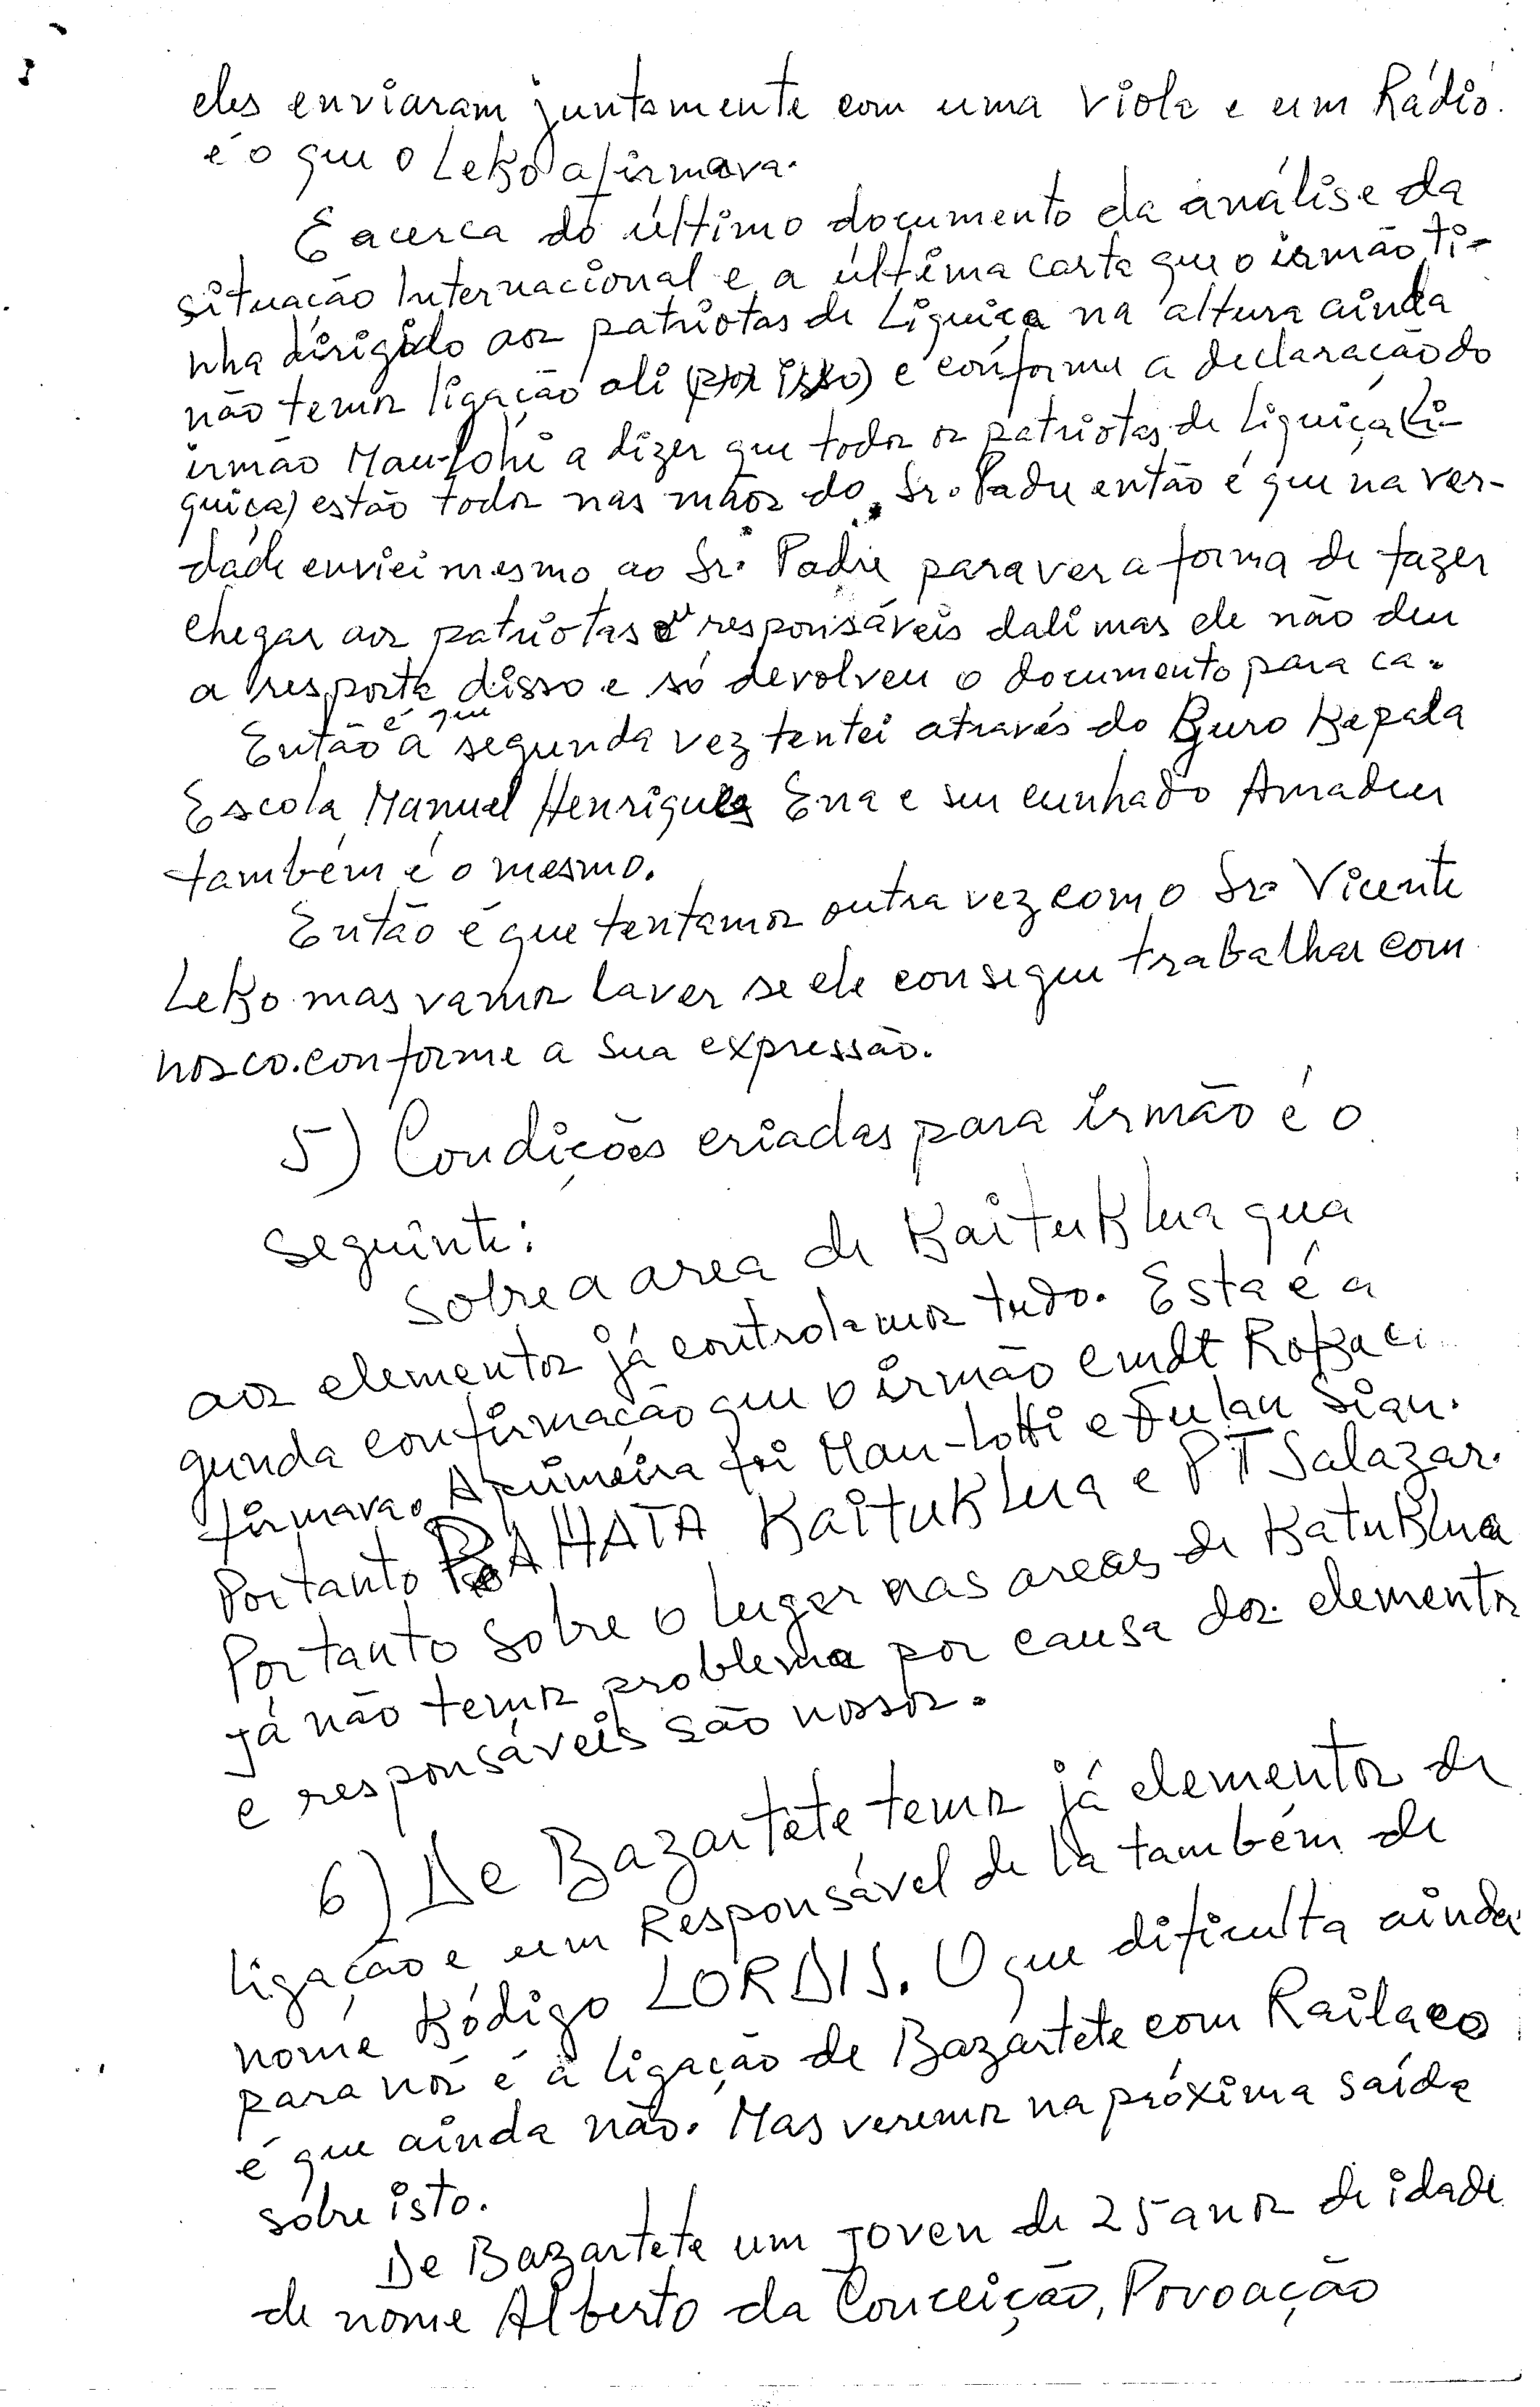 eles enviaram juntamente com uma viola e um Rádio.
é o que o Leko afirmava.
E acerca do último documento da análise da
situação Internacional e a última carta que o irmão ti-
nha dirigido aos patriotas de Liquiça na altura ainda
não temos ligação ali (por isso) e conforme a declaração do
irmão Mau-Lohi a dizer que todos os patriotas de Liquiça (Li-
quiça) estão todos nas mãos do Sr. Padre então é que na ver-
dade enviei mesmo ao Sr. Padre para ver a forma de fazer
chegar aos patriotas e responsáveis dali mas ele não deu
a resposta disso e só devolveu o documento para ca.
Então é que a segunda vez tentei através do Guro Kepala
Escola Manuel Henriques Ena e seu cunhado Amadeu
também é o mesmo.
Então é que tentamos outra vez com o Sr. Vicente
Leko mas vamos la ver se ele consegue trabalhar com
nosco. conforme a sua expressão.
5) Condições criadas para irmão é o
seguinte:
Sobre a area de Kaituklua qua
aos elementos já controlamos tudo. Esta é a
gunda confirmação que o irmão cmdt Rokaci
firmava. A primeira foi Mau-Lohi e Fulan Sian.
Portanto BAHATA Kaituklua e PT Salazar.
Portanto sobre o lugar nas areas de Katuklua
já não temos problema por causa dos elementos
e responsáveis são nossos.
6) De Bazartete temos já elementos de
ligação e um Responsável de la também de
nome Kódigo LORDIS. O que dificulta ainda
para nós é a ligação de Bazartete com Railaco
é que ainda não. Mas veremos na próxima saída
sobre isto.
De Bazartete um joven de 25 anos de idade
de nome Alberto da Conceição, Povoação